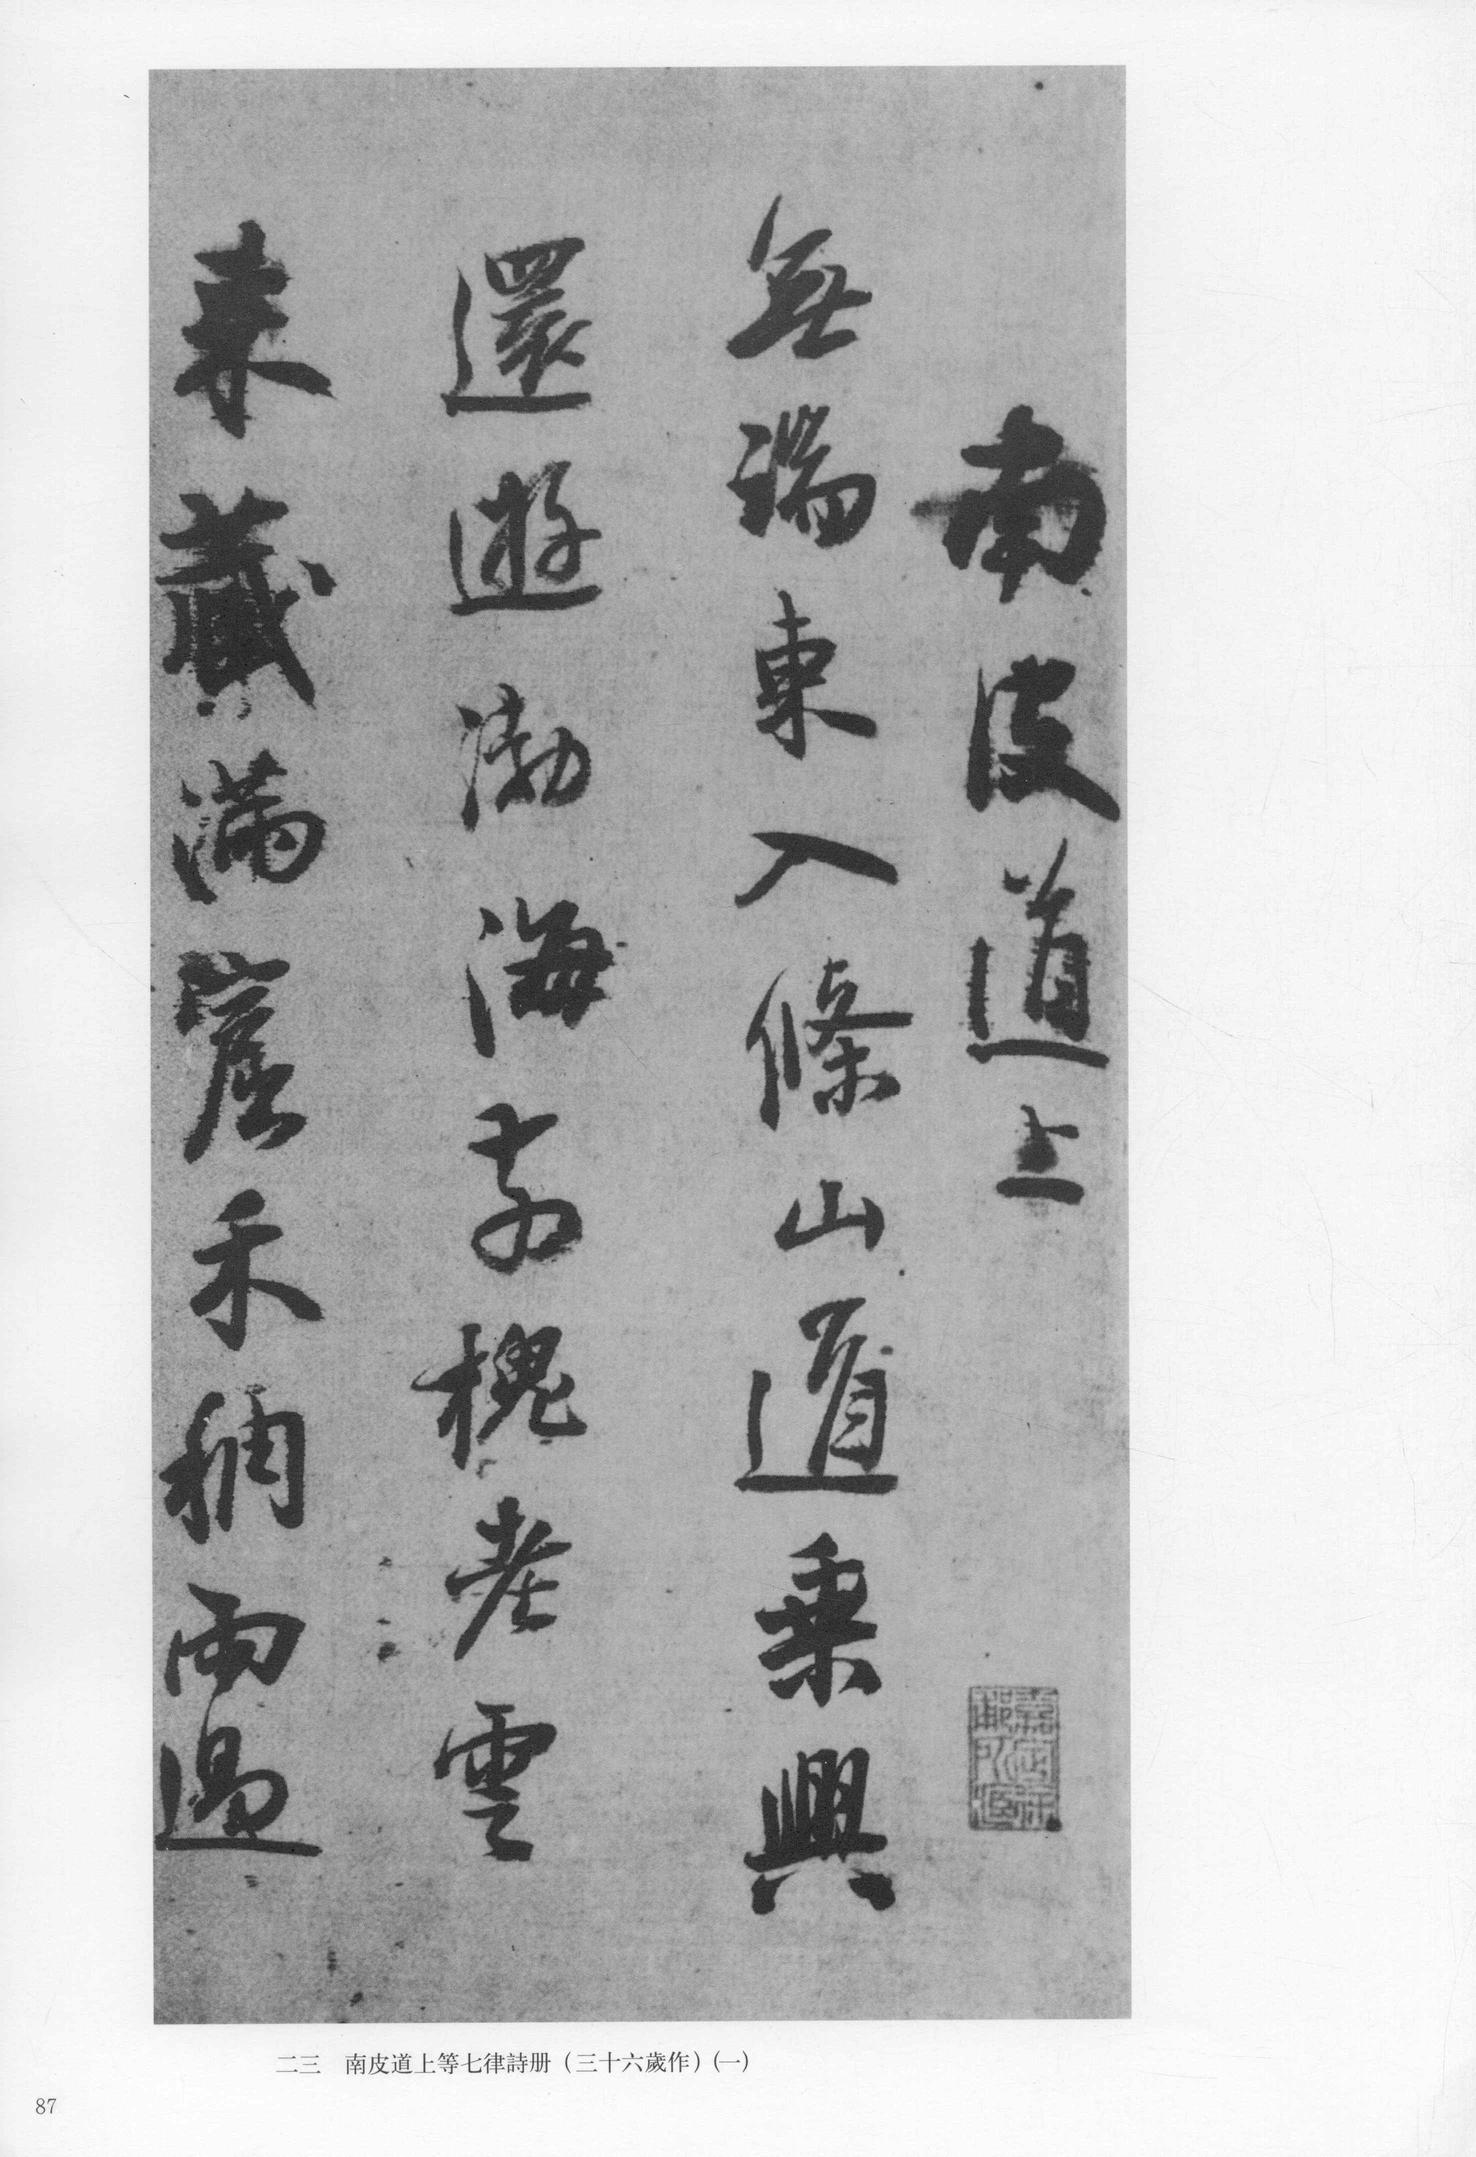 南皮道上
無端東入條山道乗興
還遊渤海前槐老雲
來藏滿窟禾稠雨過
二三　南皮道上等七律詩册（三十六歲作）（一）
87